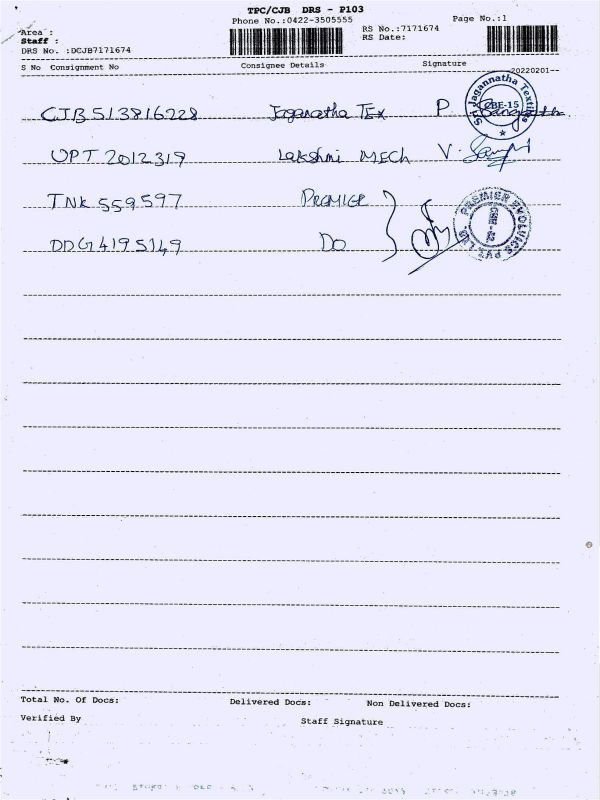 TPC/CJB DRS - P103
Phone No.:0422-3505555 Page No.:1
Area : RS No.:7171674
Staff : RS Date:
DRS No. :DCJB7171674
S No Consignment No Consignee Details Signature 20220201
CJB513816228 Jaganatha TEX P
Sri Jagannatha Textiles CBE-15
UPT 2012319 Lakshmi MECH V.
TNK 559597 PREMIER
PREMIER EVOLVICS PVT LTD
DDG4195149 DO
Total No. Of Docs: Delivered Docs: Non Delivered Docs:
Verified By Staff Signature